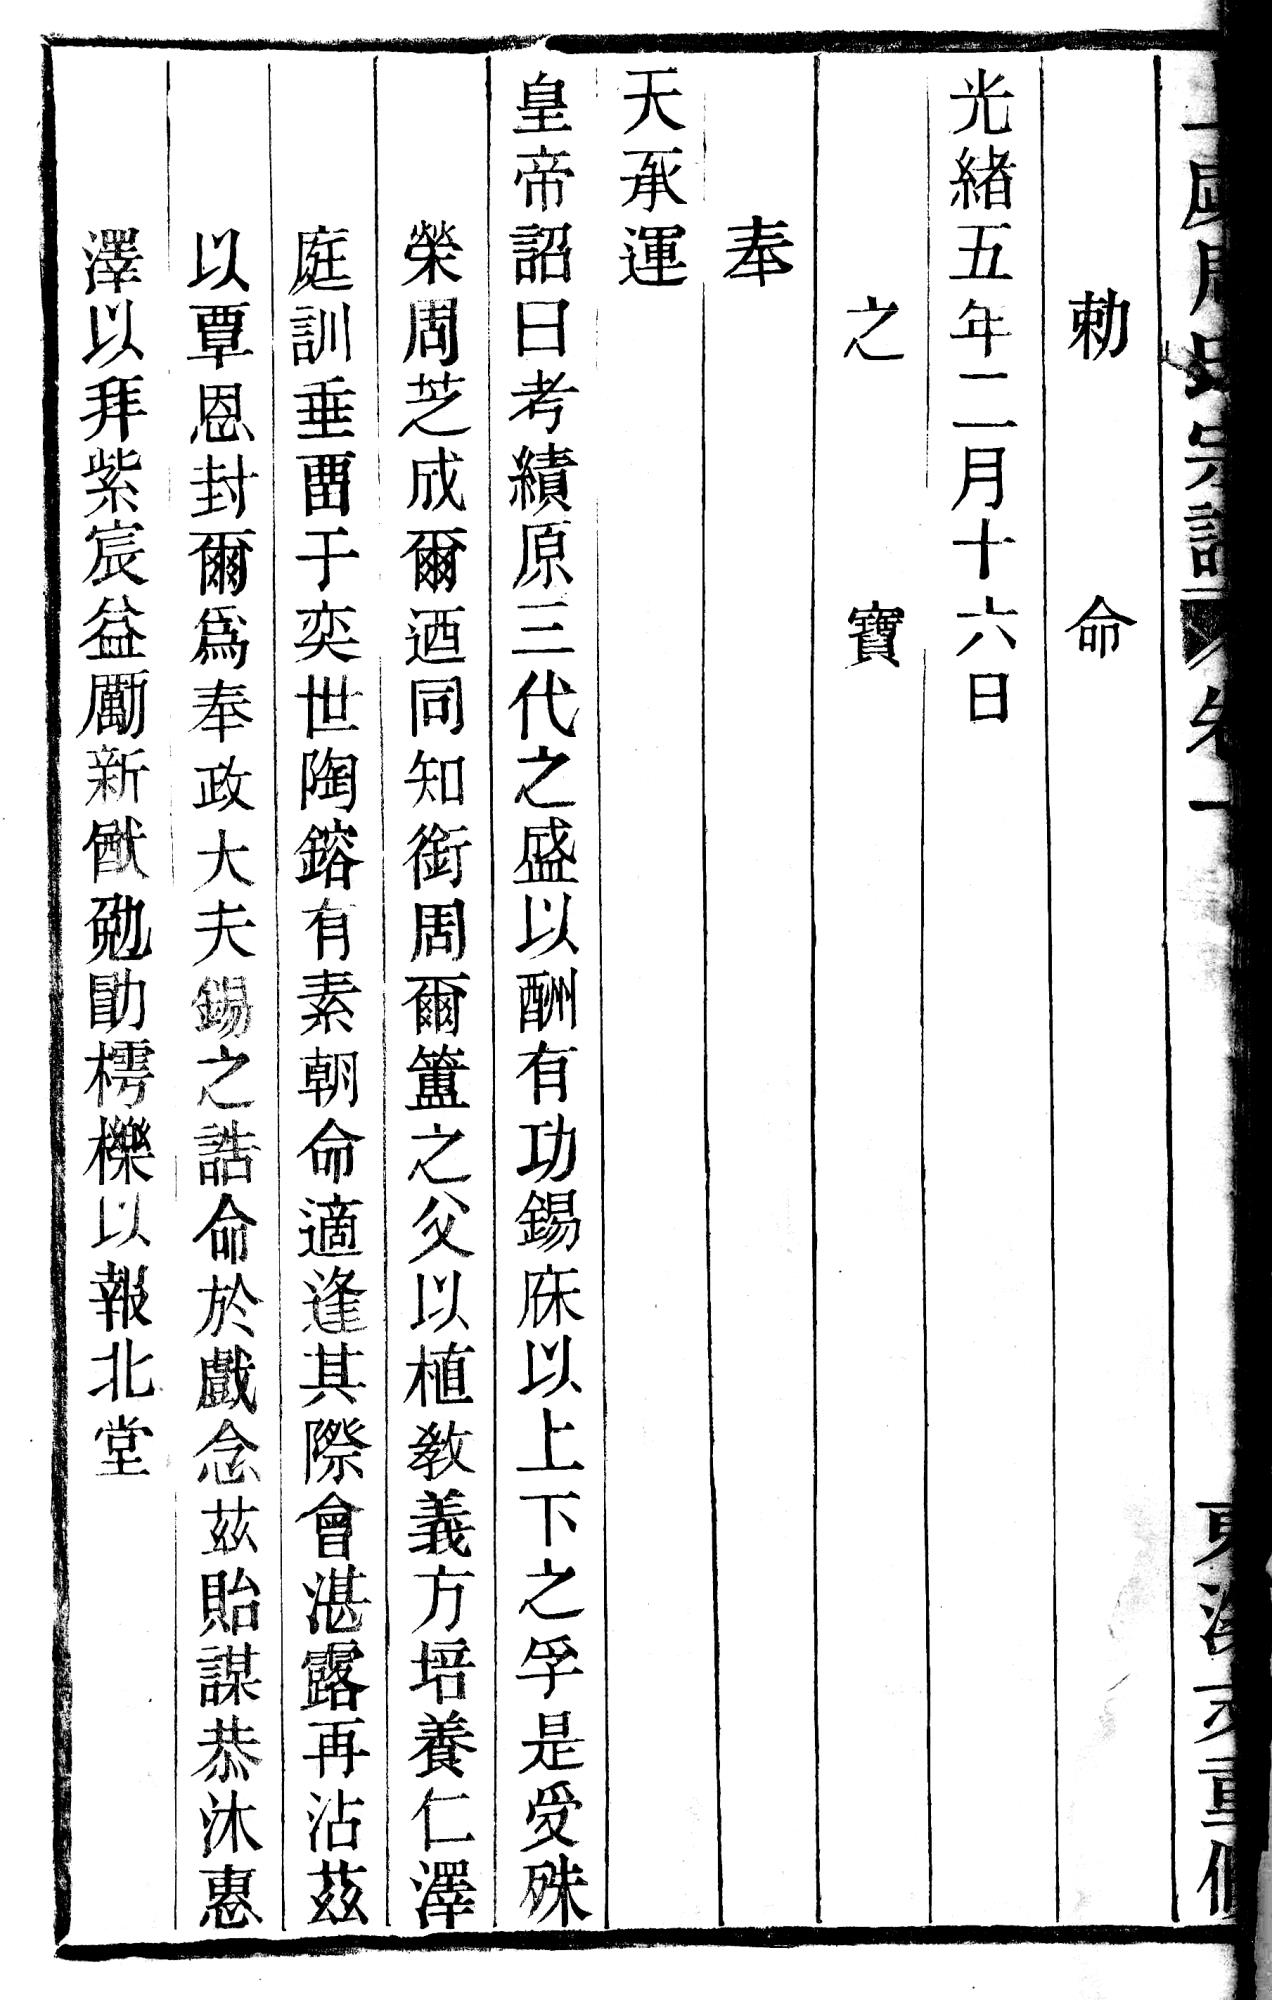 周氏宗譜 卷一
勅命
光緒五年二月十六日
之寶
奉
天承運
皇帝詔曰考績原三代之盛以酬有功錫庥以上下之孚是受殊
榮周芝成爾迺同知銜周爾簠之父以植教義方培養仁澤
庭訓垂畱于奕世陶鎔有素朝命適逢其際會湛露再沾茲
以覃恩封爾爲奉政大夫錫之誥命於戲念茲貽謀恭沐惠
澤以拜紫宸益勵新猷勉勖樗櫟以報北堂